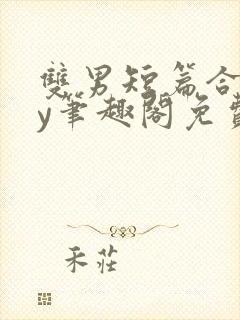 雙男短篇合
y筆趣閣免費
禾莊